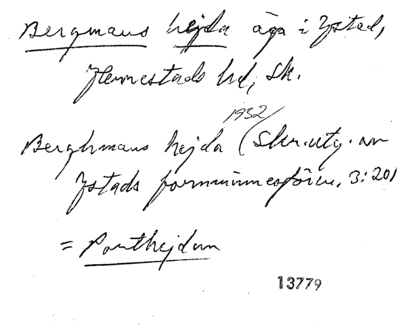 Bergmans hejda äga i Ystad,
Jemestads hd, Sk.
1932
Berghmans hejda (Skr. utg. av
Ystads fornminnesfören. 3:20)
= Ponthejdan
13779